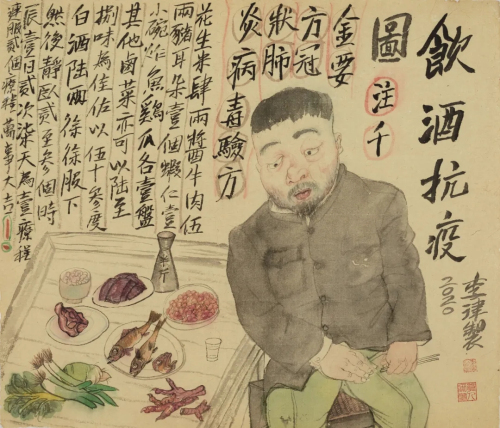 飲酒抗疫
圖注千
金要
方冠
狀肺
炎病毒驗方
花生米肆兩醬牛肉伍
兩豬耳朵壹個蝦仁壹
小碗炸魚鷄爪各壹盤
其他鹵菜亦可以陸至
捌味為佳佐以伍十叁度
白酒陸兩徐徐服下
然後靜臥貳至叁個時
辰壹日貳次柒天為壹療程
連服貳個療程萬事大吉
李津製
二〇二〇
半斤